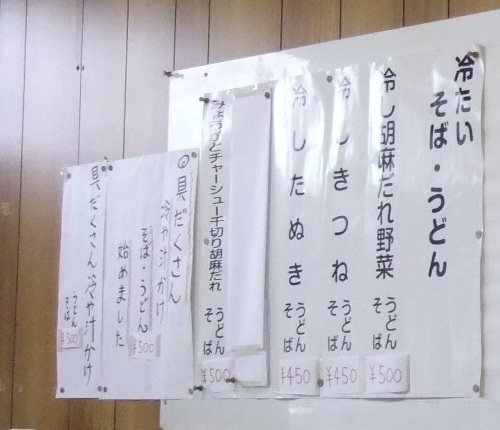 冷たい
そば・うどん
冷し胡麻だれ野菜 うどん
そば
¥500
冷しきつね うどん
そば
¥450
冷したぬき うどん
そば
¥450
みょうがとチャーシュー千切り胡麻だれ うどん
そば
¥500
◎具だくさん
冷や汁かけ
そば・うどん
¥500
始めました
具だくさん冷や汁かけ
うどん
そば
¥500